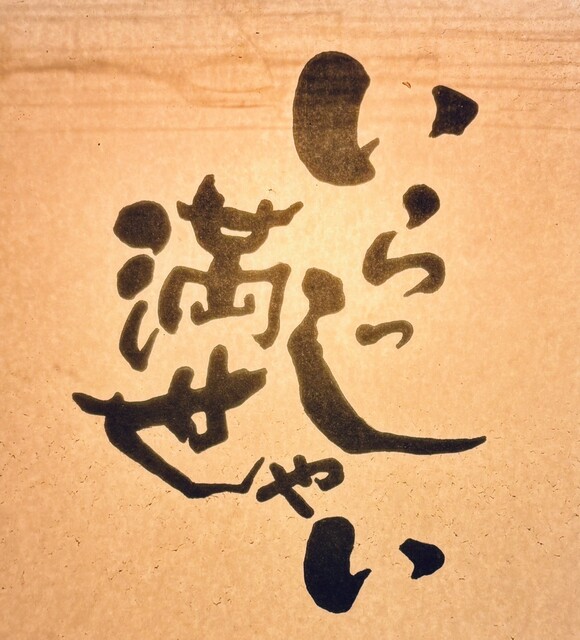 いらっしゃい
満世